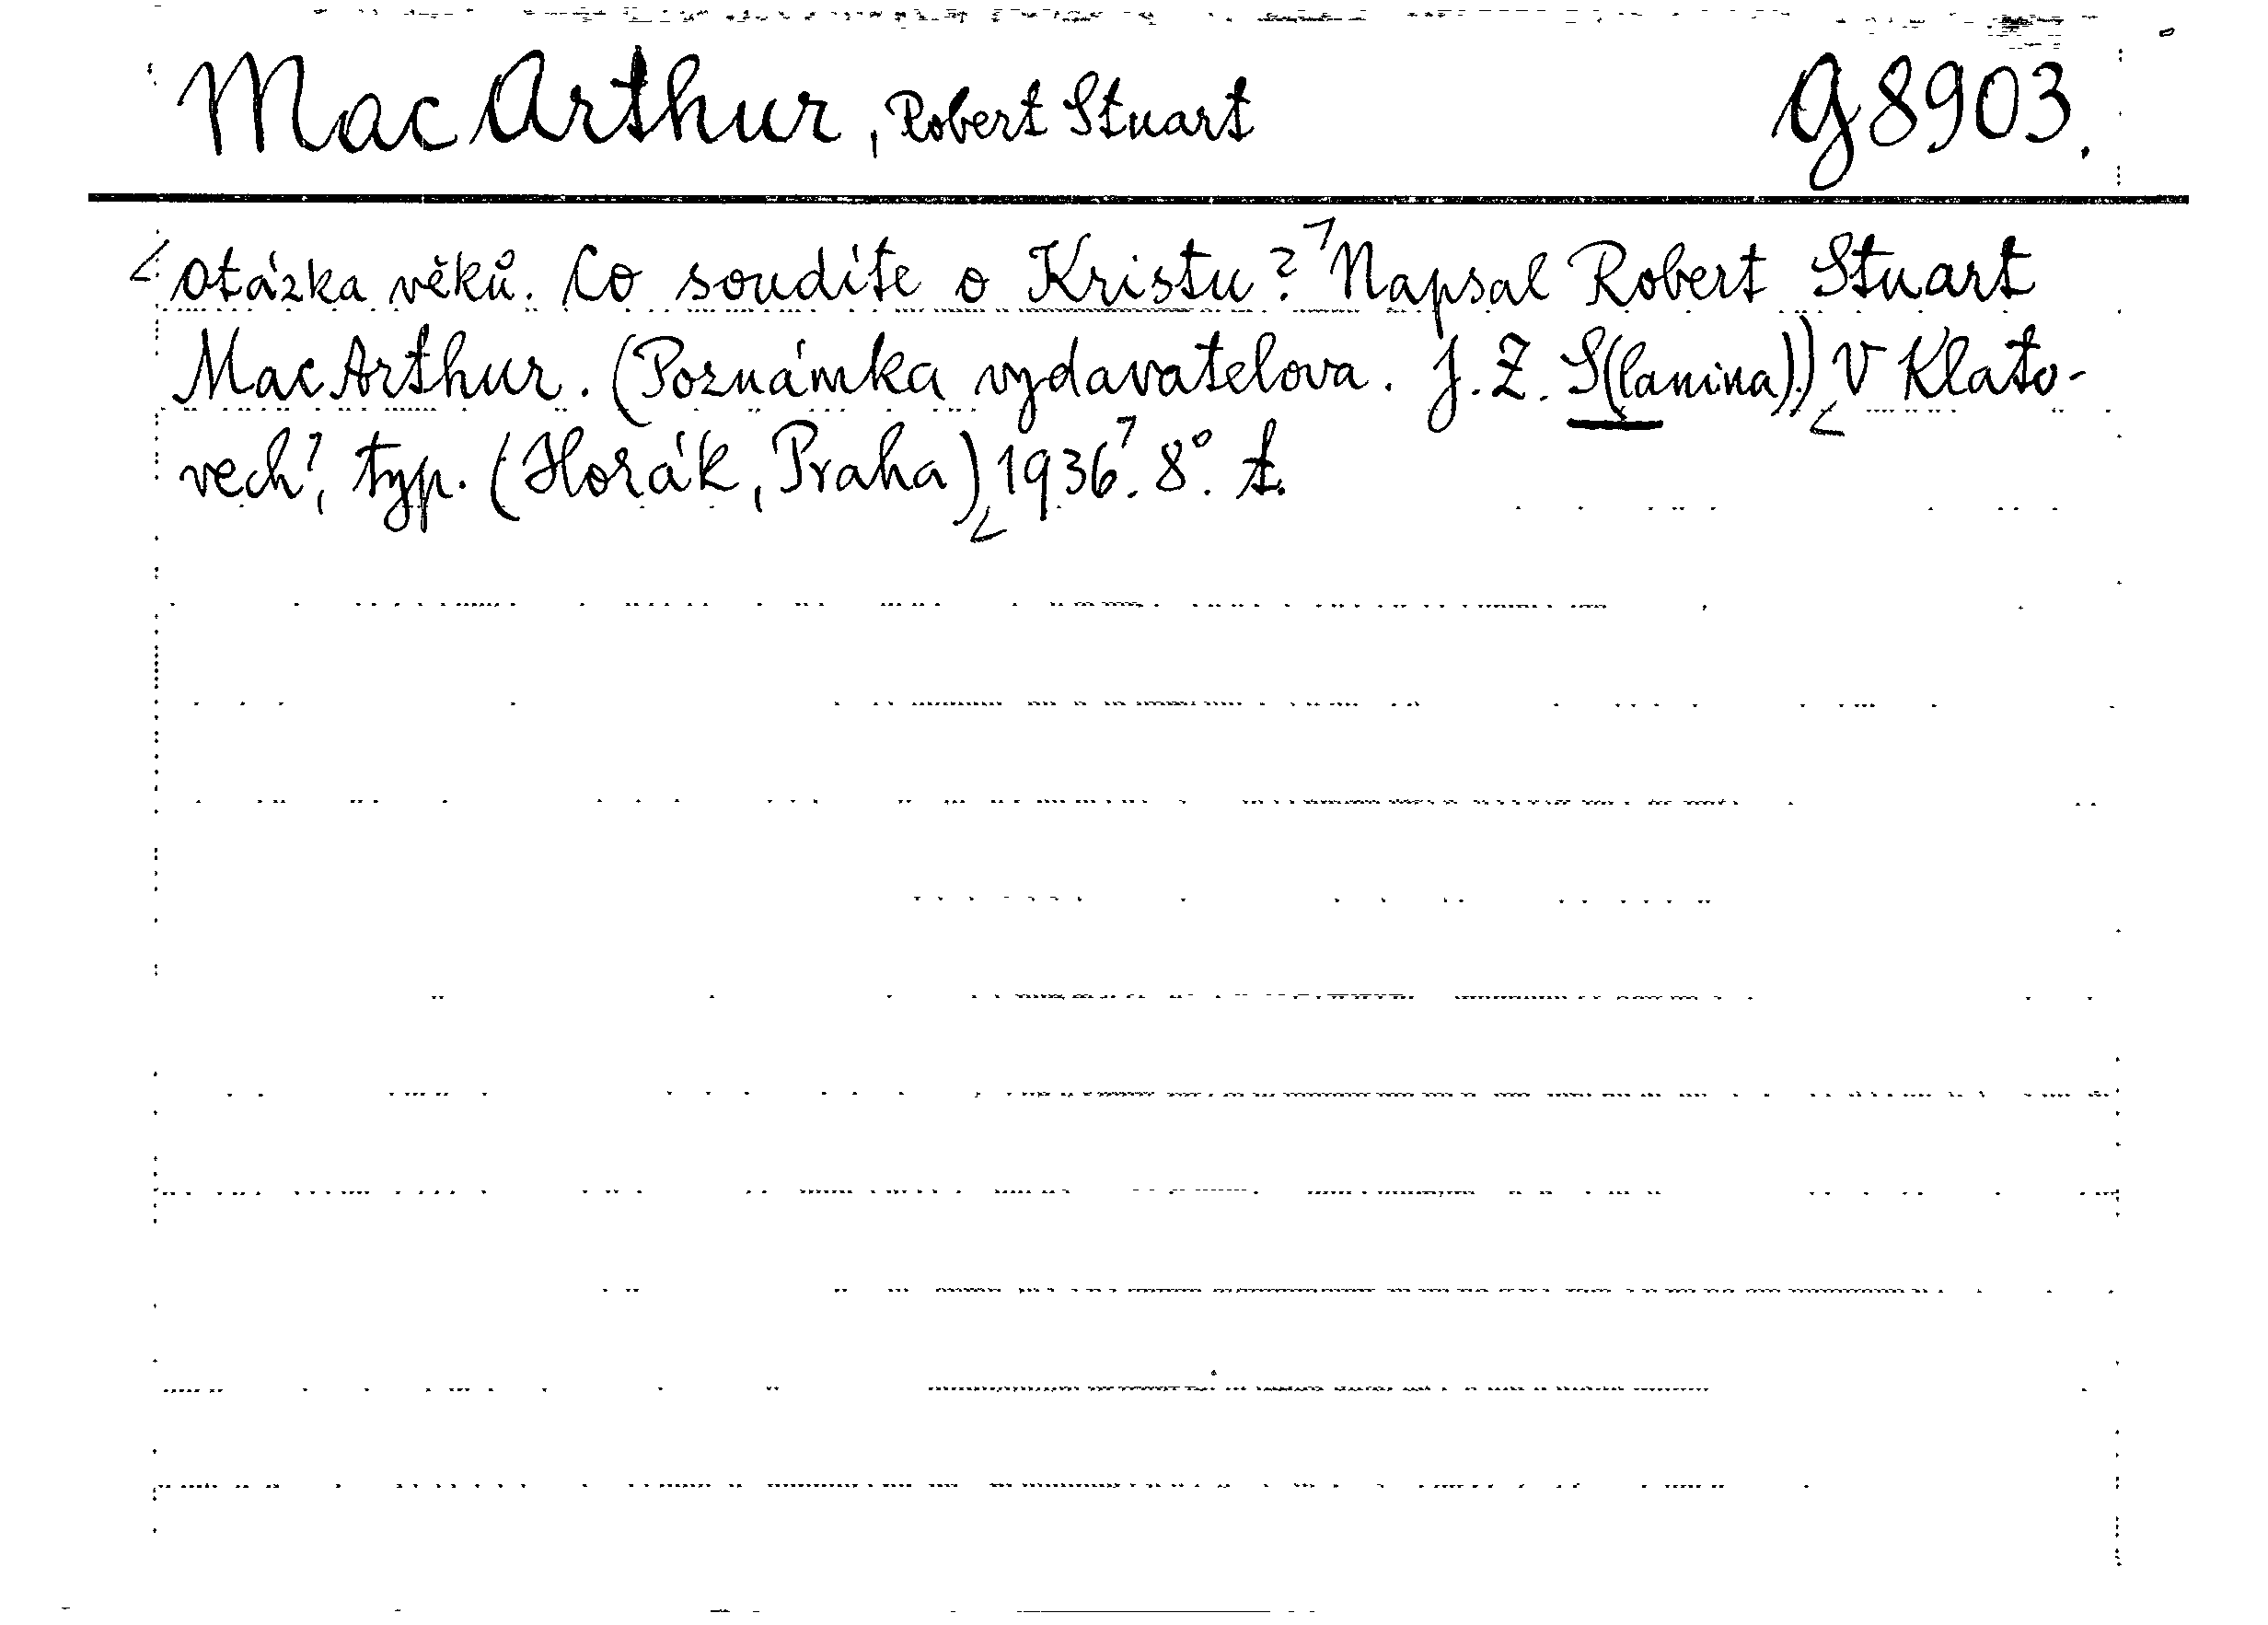 MacArthur, Robert Stuart G 8903.
Otázka věků. Co soudíte o Kristu? Napsal Robert Stuart
MacArthur. (Poznámka vydavatelova. J. Z. S(lanina).) V Klato-
vech, typ. (Horák, Praha) 1936. 8°. t.